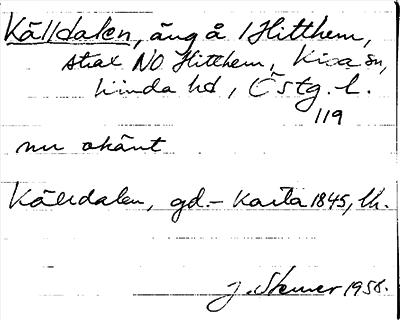 Källdalen, äng å Hitthem,
strax NO Hitthem, Kisa sn,
Kinda hd, Östg. l.
119
nu okänt
Källdalen, gd. - Karta 1845,
J. Stemer 1958.